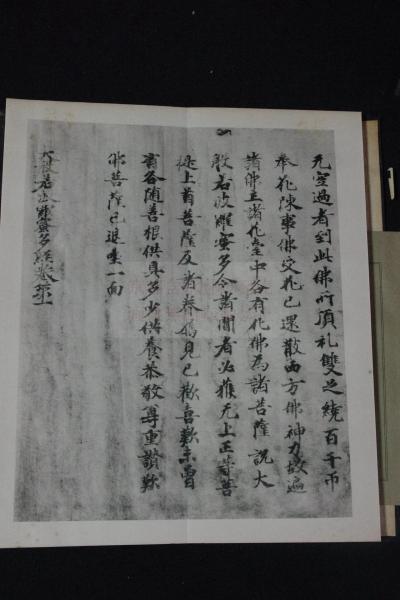 无空過者到此佛所頂礼雙足繞百千帀
奉花陳事佛受花已還散西方佛神力故遍
諸佛土諸花臺中各有化佛為諸菩薩說大
般若波羅蜜多令諸聞者必獲无上正等菩
提上首菩薩及諸眷屬見已歡喜歎未曾
有各随善根供具多少供養恭敬尊重讚歎
佛菩薩已退坐一面
大般若波羅蜜多經卷第一